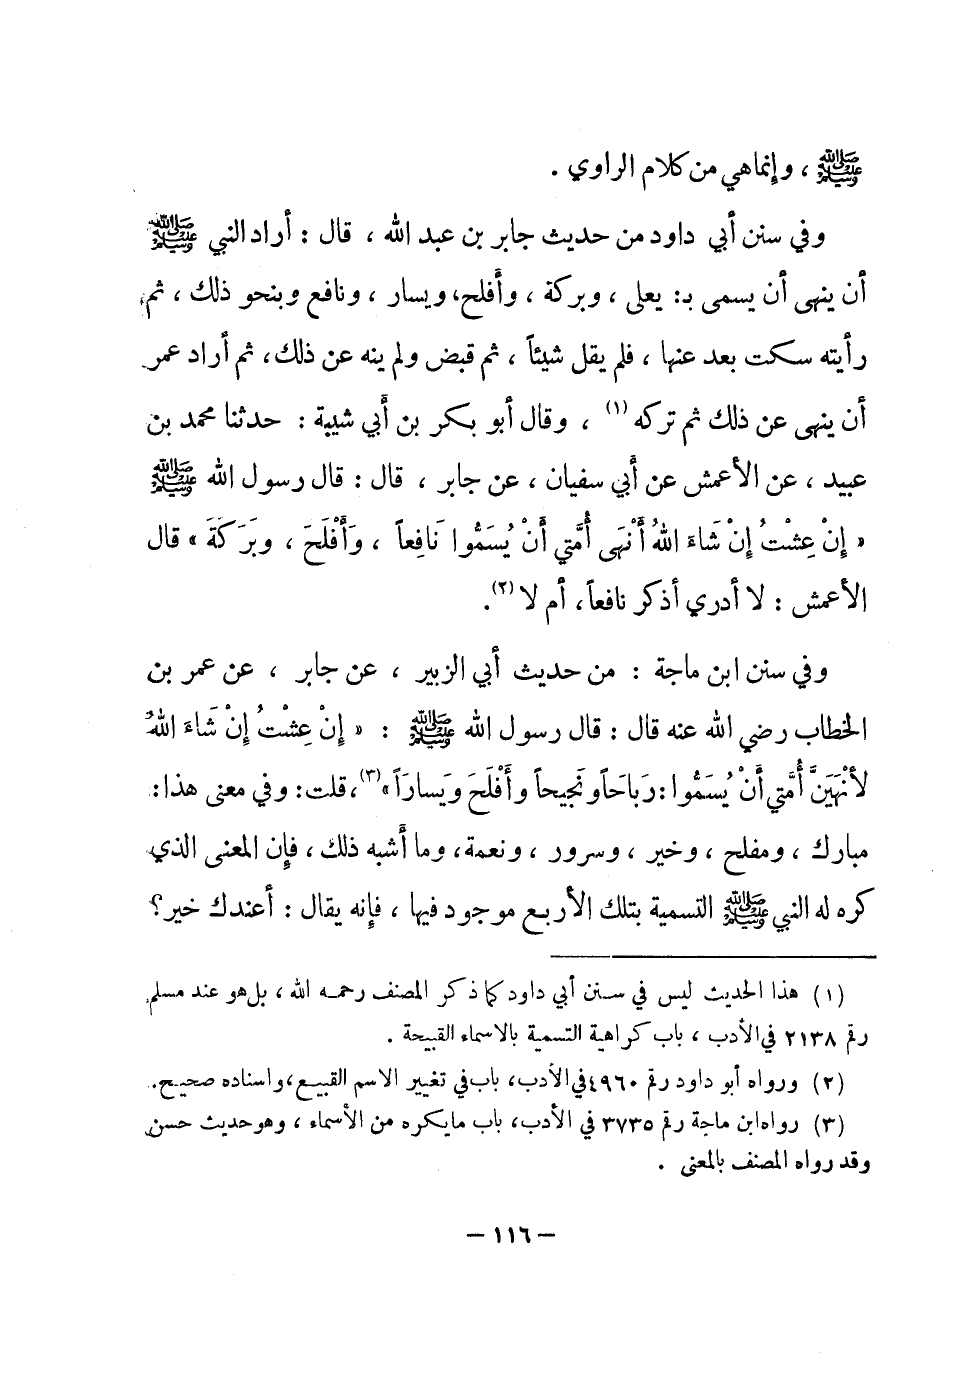 ﷺ ، وإنما هي من كلام الراوي .
وفي سنن أبي داود من حديث جابر بن عبد الله ، قال : أراد النبي ﷺ
أن ينهى أن يسمى بـ: يعلى ، وبركة ، وأفلح، ويسار ، ونافع وبنحو ذلك ، ثم
رأيته سكت بعد عنها ، فلم يقل شيئاً ، ثم قبض ولم ينه عن ذلك، ثم أراد عمر
أن ينهى عن ذلك ثم تركه (١) ، وقال أبو بكر بن أبي شيبة : حدثنا محمد بن
عبيد ، عن الأعمش عن أبي سفيان ، عن جابر ، قال : قال رسول الله ﷺ
« إِنْ عِشْتُ إِنْ شَاءَ اللهُ أَنْهَى أُمَّتي أَنْ يُسَمُّوا نَافِعاً ، وَأَفْلَحَ ، وبَرَكَةَ » قال
الأعمش : لا أدري أذكر نافعاً، أم لا (٢).
وفي سنن ابن ماجة : من حديث أبي الزبير ، عن جابر ، عن عمر بن
الخطاب رضي الله عنه قال : قال رسول الله ﷺ : « إِنْ عِشْتُ إِنْ شَاءَ اللهُ
لأَنْهَيَنَّ أُمَّتي أَنْ يُسَمُّوا : رَبَاحَاً ونَجيحاً وأَفْلَحَ ويَساراً » (٣)، قلت : وفي معنى هذا :
مبارك ، ومفلح ، وخير ، وسرور ، ونعمة، وما أشبه ذلك ، فإن المعنى الذي
كره له النبي ﷺ التسمية بتلك الأربع موجود فيها ، فإنه يقال : أعندك خير؟
(١) هذا الحديث ليس في سنن أبي داود كما ذكر المصنف رحمه الله ، بل هو عند مسلم
رقم ٢١٣٨ في الأدب ، باب كراهية التسمية بالاسماء القبيحة .
(٢) ورواه أبو داود رقم ٤٩٦٠ في الأدب، باب في تغيير الاسم القبيح، واسناده صحيح.
(٣) رواه ابن ماجة رقم ٣٧٣٥ في الأدب، باب ما يكره من الأسماء ، وهو حديث حسن
وقد رواه المصنف بالمعنى .
— ١١٦ —